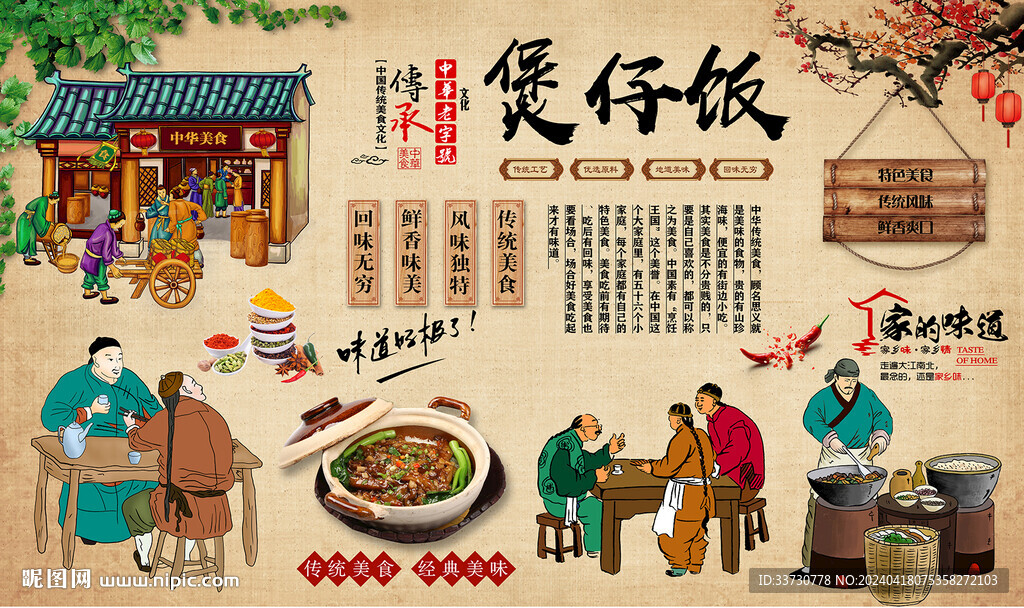 煲仔饭
文化
中華老字號
傳承
【中国传统美食文化】
中华美食
传统工艺
优选原料
地道美味
回味无穷
中华美食
特色美食
传统风味
鲜香爽口
传统美食
风味独特
鲜香味美
回味无穷
中华传统美食，顾名思义就
是美味的食物，贵的有山珍
海味，便宜的有街边小吃。
其实美食是不分贵贱的，只
要是自己喜欢的，都可以称
之为美食。中国素有“烹饪
王国”这个美誉。在中国这
个大家庭里，有五十六个小
家庭，每个家庭都有自己的
特色美食。美食吃前有期待
、吃后有回味，享受美食也
要看场合，场合好美食吃起
来才有味道。
味道好极了！
家的味道
家乡味·家乡情
TASTE
OF HOME
走遍大江南北，
最念的，还是家乡味...
传统美食
经典美味
昵图网 www.nipic.com
ID:33730778 NO:20240418075358272103